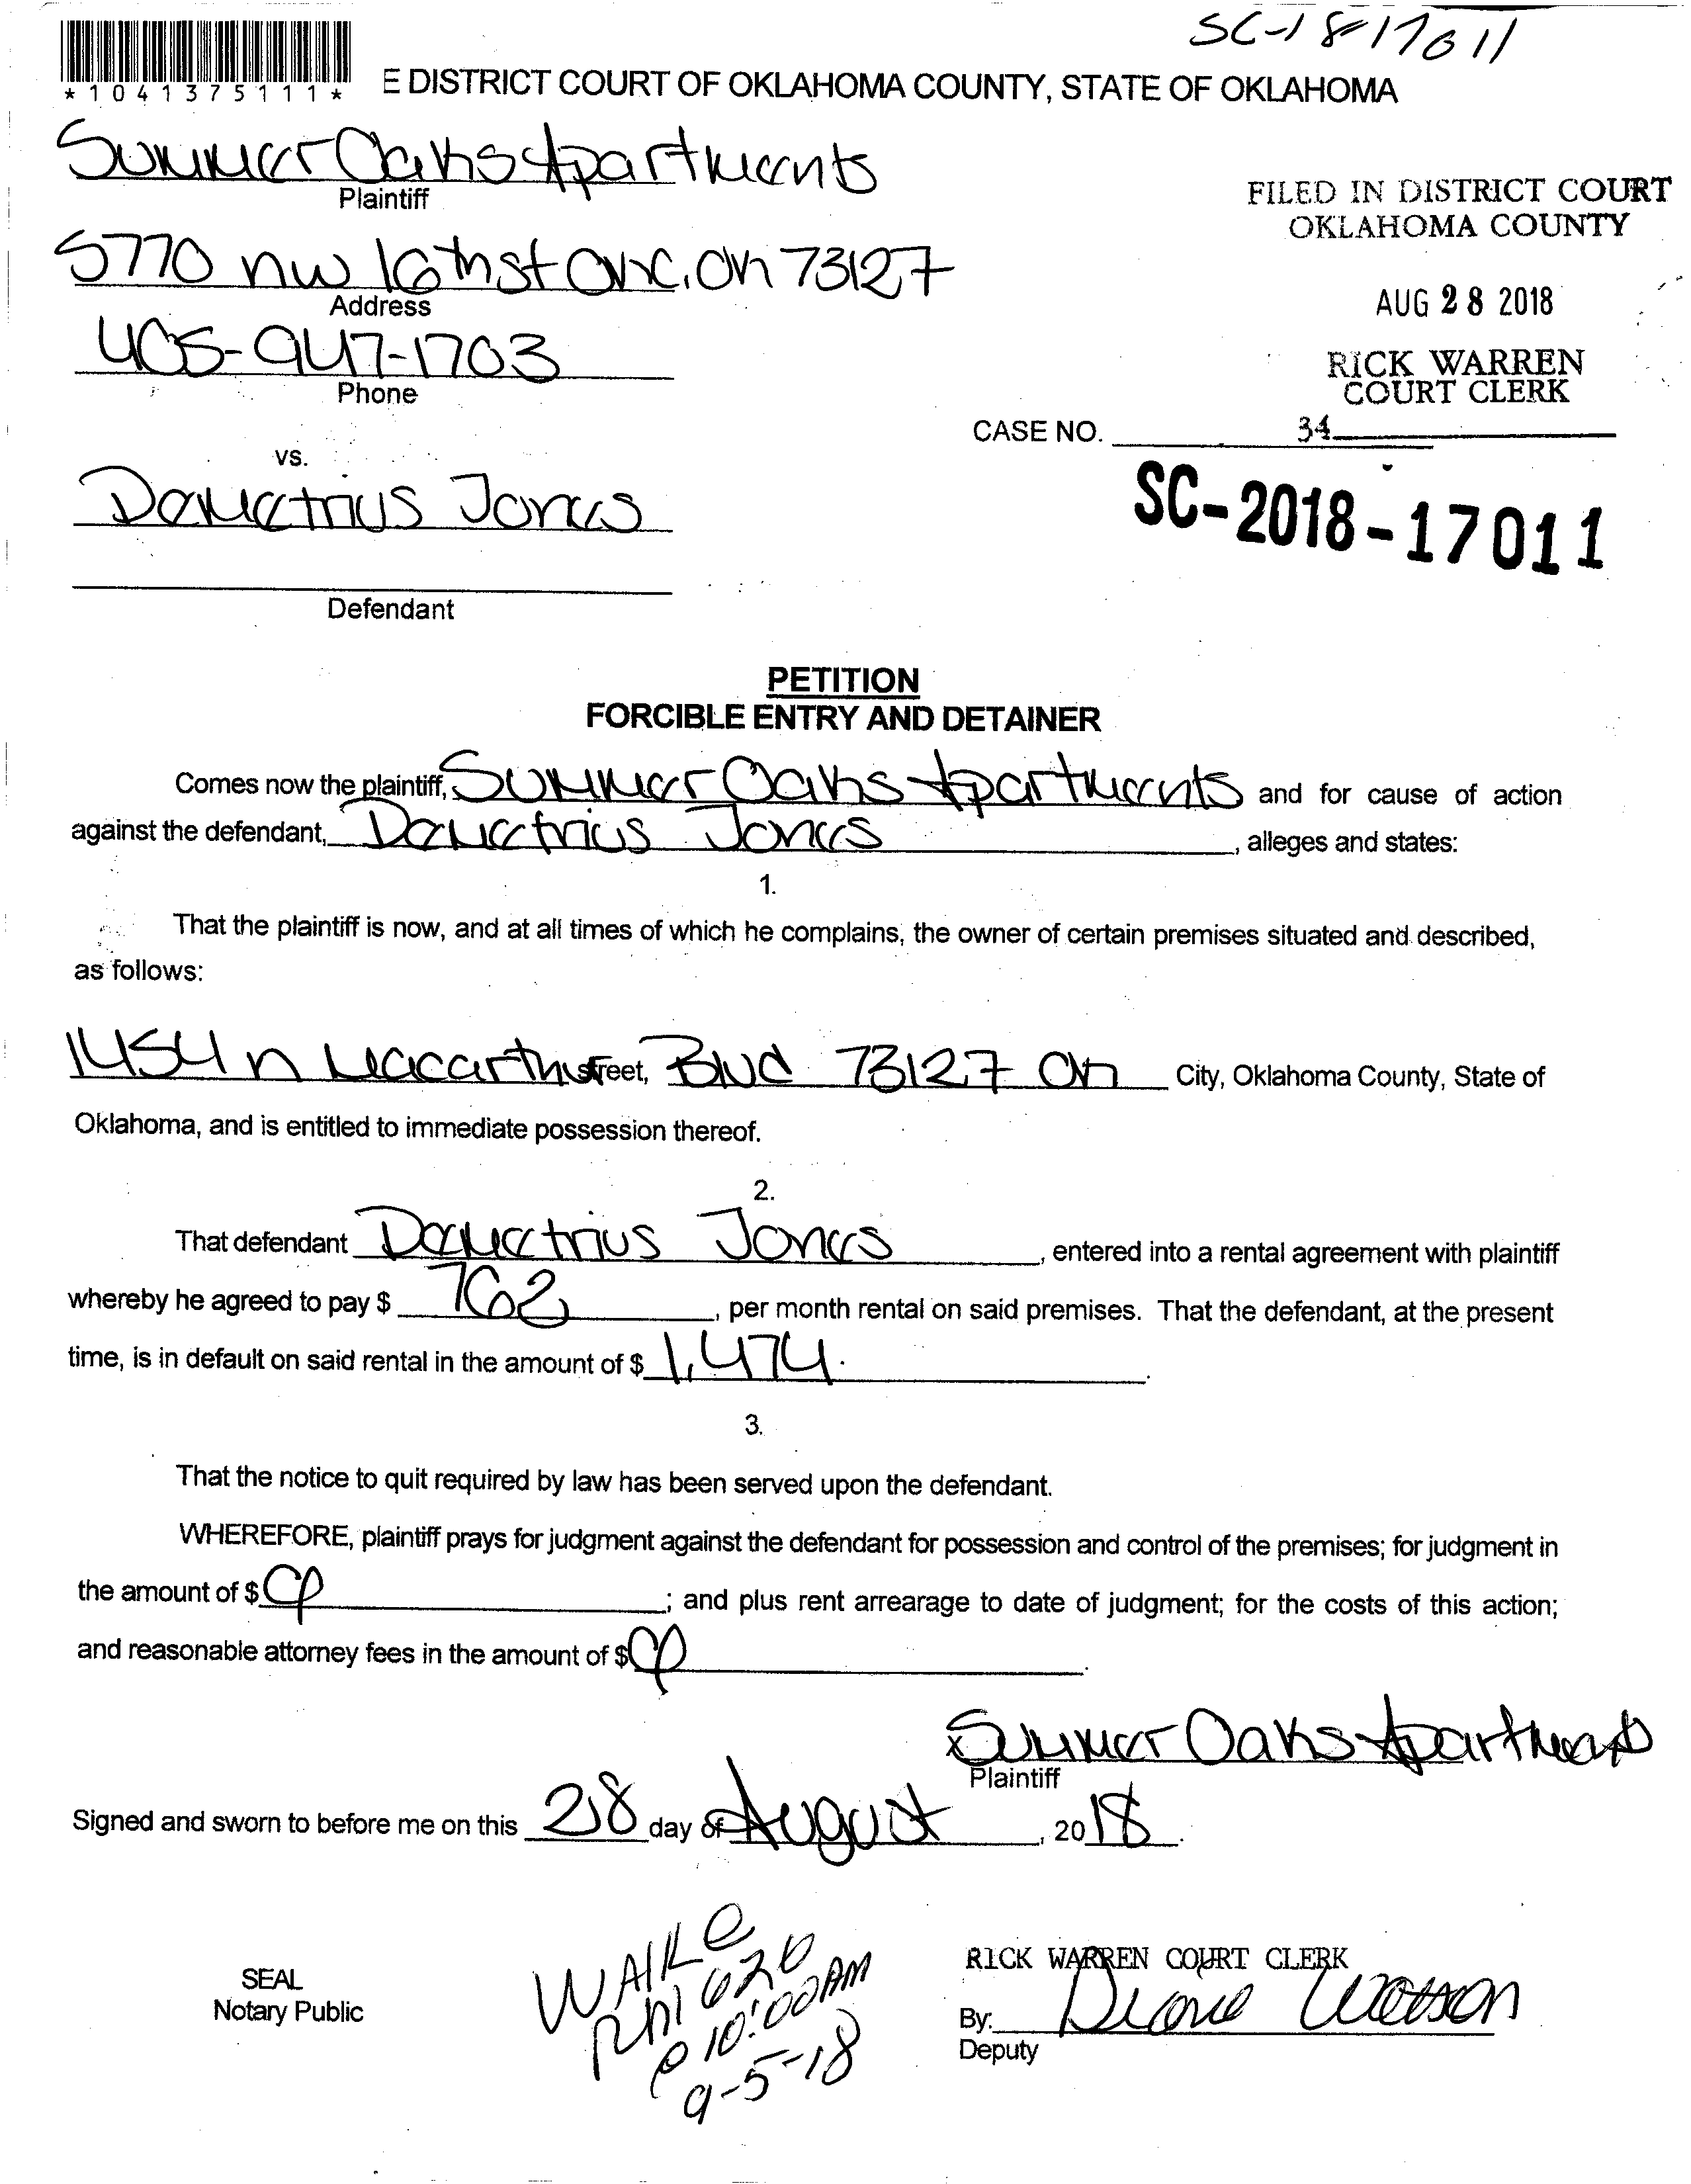 SC-18-17011
*1041375111*
E DISTRICT COURT OF OKLAHOMA COUNTY, STATE OF OKLAHOMA
Summer Oaks Apartments
Plaintiff
FILED IN DISTRICT COURT
OKLAHOMA COUNTY
5770 nw 16th st OKC, OK 73127
Address
AUG 28 2018
405-947-1703
Phone
RICK WARREN
COURT CLERK
CASE NO. 34
vs.
Demetrius Jones
SC-2018-17011
Defendant
PETITION
FORCIBLE ENTRY AND DETAINER
Comes now the plaintiff, Summer Oaks Apartments and for cause of action
against the defendant, Demetrius Jones, alleges and states:
1.
That the plaintiff is now, and at all times of which he complains, the owner of certain premises situated and described,
as follows:
1454 n Macarthur street, Blvd 73127 OK City, Oklahoma County, State of
Oklahoma, and is entitled to immediate possession thereof.
2.
That defendant Demetrius Jones, entered into a rental agreement with plaintiff
whereby he agreed to pay $ 762, per month rental on said premises. That the defendant, at the present
time, is in default on said rental in the amount of $ 1,474.
3.
That the notice to quit required by law has been served upon the defendant.
WHEREFORE, plaintiff prays for judgment against the defendant for possession and control of the premises; for judgment in
the amount of $ ; and plus rent arrearage to date of judgment; for the costs of this action;
and reasonable attorney fees in the amount of $ .
x Summer Oaks Apartments
Plaintiff
Signed and sworn to before me on this 28 day of August, 2018.
SEAL
Notary Public
WALKE
RM 620
@ 10:00AM
9-5-18
RICK WARREN COURT CLERK
By: Diane Watson
Deputy